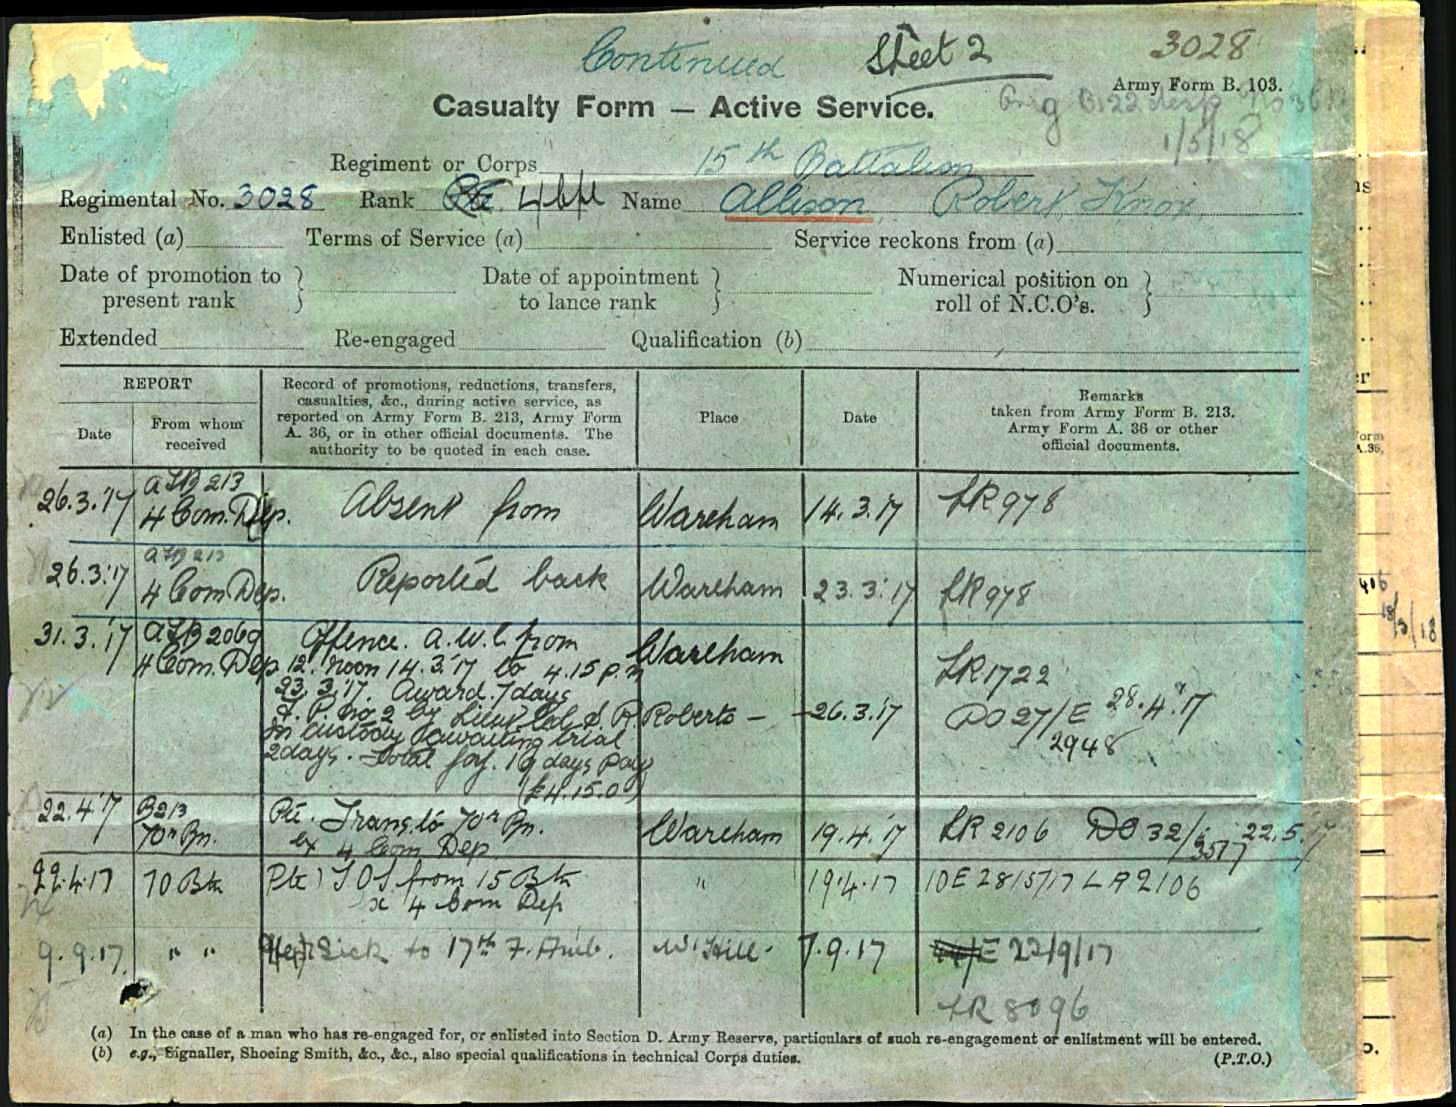 Continued Sheet 2 3028
Army Form B. 103.
Casualty Form — Active Service.
1/5/18
Regiment or Corps 15th Battalion
Regimental No. 3028 Rank Name Allison Robert Knox
Enlisted (a) Terms of Service (a) Service reckons from (a)
Date of promotion to present rank } Date of appointment to lance rank } Numerical position on roll of N.C.O's. }
Extended Re-engaged Qualification (b)
REPORT
Date
From whom received
Record of promotions, reductions, transfers,
casualties, &c., during active service, as
reported on Army Form B. 213, Army Form
A. 36, or in other official documents. The
authority to be quoted in each case.
Place
Date
Remarks
taken from Army Form B. 213.
Army Form A. 36 or other
official documents.
26.3.17 AFB 213 4 Com. Dep. Absent from Wareham 14.3.17 LR 978
26.3.17 AFB 213 4 Com Dep. Reported back Wareham 23.3.17 LR 978
31.3.17 AFB 2069 Offence. A.W.L from Wareham
4 Com. Dep 12 noon 14.3.17 to 4.15 p.m LR 1722
23.3.17. Award. 7 days
F.P. No 2 by Lieut Col S. R. Roberts — 26.3.17 DO 27/E 28.4.17
In custody awaiting trial 2948
2 days. Total forf. 19 days pay
(£4.15.0)
22.4.17 B213 70th Bn. Pte. Trans. to 70th Bn. ex 4 Com Dep Wareham 19.4.17 LR 2106 DO 32/ 22.5.17
22.4.17 70 Btn Pte) TOS from 15 Btn ex 4 Com Dep " 19.4.17 10E 28/5/17 LR 2106
9.9.17. " " Sick to 17th F. Amb. 7.9.17 E 22/9/17
LR 8096
(a) In the case of a man who has re-engaged for, or enlisted into Section D. Army Reserve, particulars of such re-engagement or enlistment will be entered.
(b) e.g., Signaller, Shoeing Smith, &c., &c., also special qualifications in technical Corps duties.
(P.T.O.)